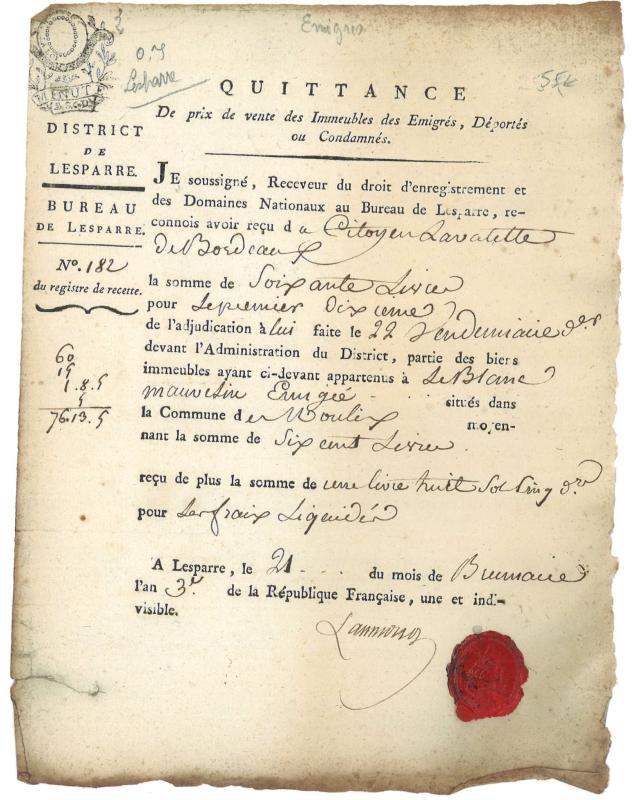 Emigrés
0.5
Lesparre
MINUTE
QUITTANCE
De prix de vente des Immeubles des Emigrés, Déportés
ou Condamnés.
DISTRICT
DE
LESPARRE.
BUREAU
DE LESPARRE.
N°. 182
du registre de recette.
60
15
1.8.5
5
76.13.5
JE soussigné, Receveur du droit d'enregistrement et
des Domaines Nationaux au Bureau de Lesparre, re-
connois avoir reçu d u Citoyen Lavalette
de Bordeaux
la somme de Soixante Livres
pour Le premier dixieme
de l'adjudication à lui faite le 22 Vendemiaire der
devant l'Administration du District, partie des biens
immeubles ayant ci-devant appartenus à Le Blanc
mauvesin Emigré situés dans
la Commune de Moulix moyen-
nant la somme de Six cent Livres
reçu de plus la somme de une livre huit Sol Cinq drs
pour Les fraix Liquidés
A Lesparre, le 21 du mois de Brumaire
l'an 3e de la République Française, une et indi-
visible.